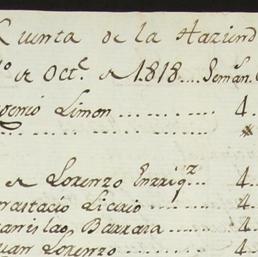 Quenta de la Haziend
10 de Octe. de 1818.... Seman.
ogenio Limon ...... 4.
de Lorenzo Enrriqz... 4.
nastacio Licerio ...... 4.
tanislao Barrara ...... 4.
Juan Lorenzo ...... 4.